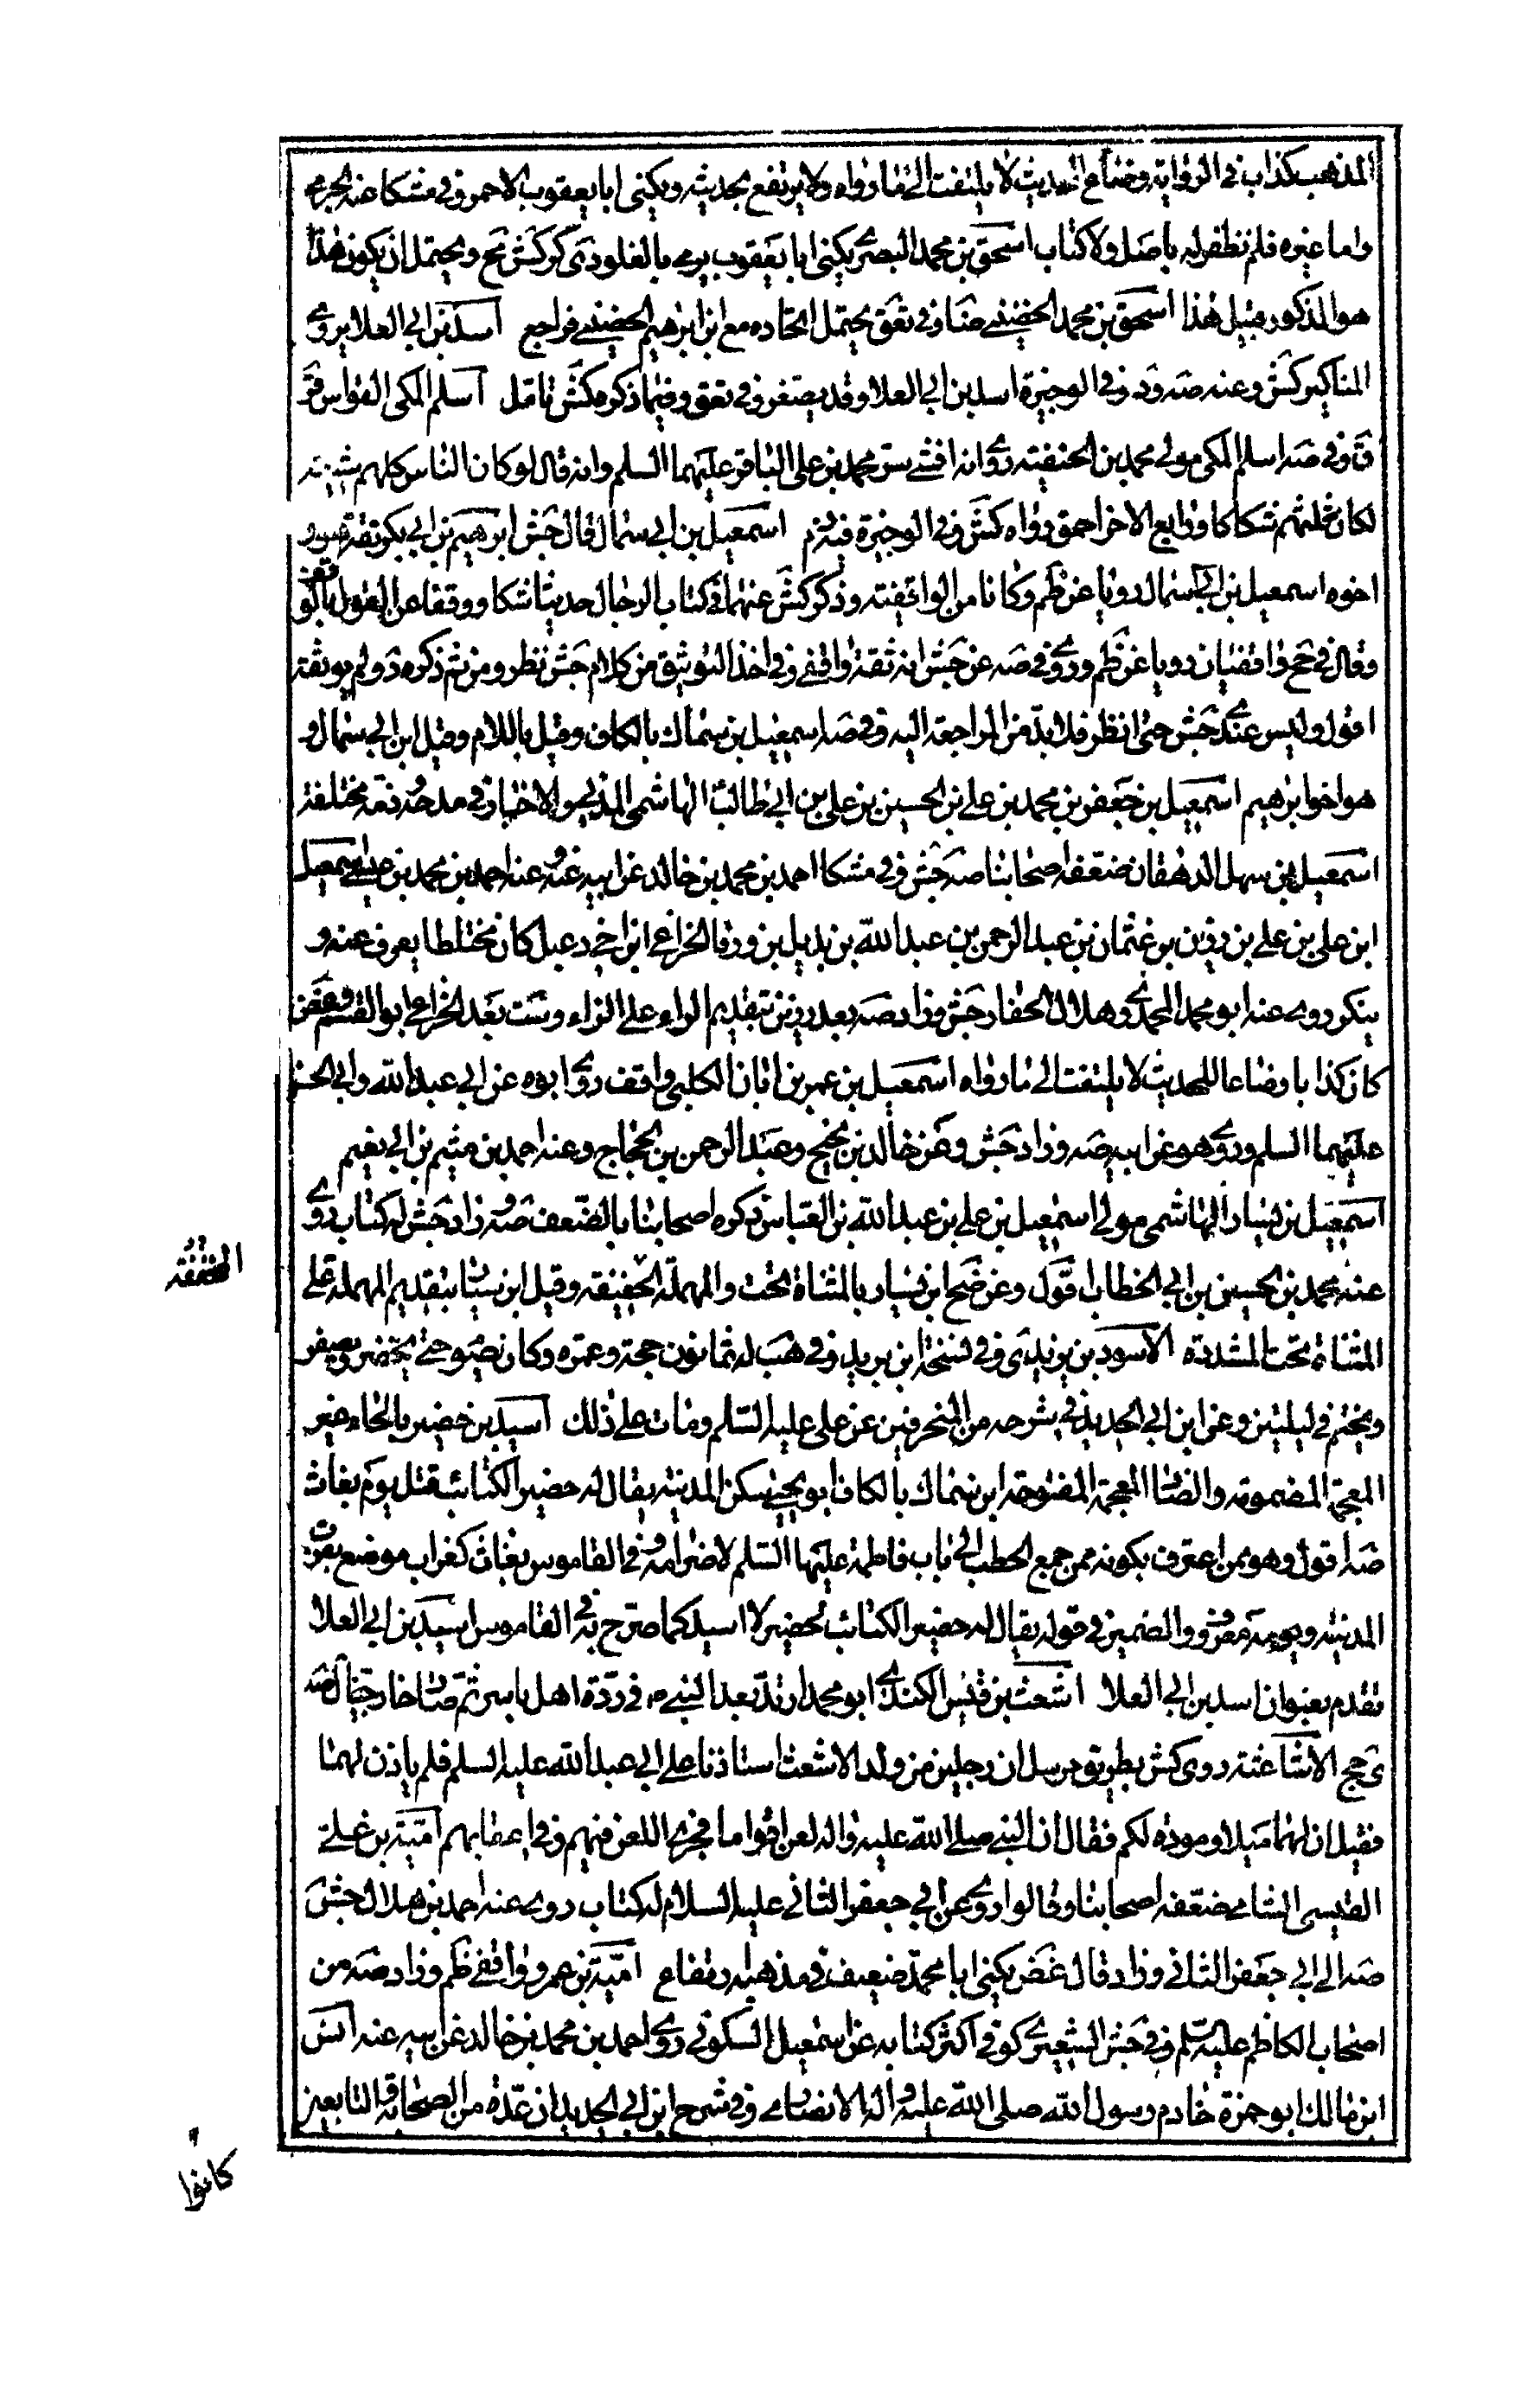 المذهب كذاب في الرواية وضاع للحديث لا يلتفت الى ما رواه ولا يرتفع بحديثه ويكنى ابا يعقوب الاحمر وفي مشكا عنه الجرمى
واما غيره فلم نظفر له باصل ولا كتاب اسحق بن محمد البصرى يكنى ابا يعقوب يرمى بالغلو دى كر كش جخ ويحتمل ان يكون هذا
هو المذكور قبيل هذا اسحق بن محمد الحضينى ضا وفي تعق يحتمل اتحاده مع ابن ابرهيم الحضينى فراجع اسد بن ابى العلا يروى
المناكير كش وعنه صه ود وفي الوجيزة اسد بن ابى العلا وقد يصغر وفي تعق وفيما ذكره كش تامل اسلم المكى القواس قر
ق وفي صه اسلم المكى مولى محمد بن الحنفية روى انه افشى سر محمد بن على الباقر عليهما السلم وانه قال لو كان الناس كلهم شيعة
لكان ثلثهم شكاكا والربع الاخر احمق رواه كش وفي الوجيزة فيه ذم اسمعيل بن ابى سمال قال جش ابرهيم بن ابى بكر ثقة هو و
اخوه اسمعيل بن ابى سمال رويا عن ظم وكانا من الواقفة وذكر كش عنهما في كتاب الرجال حديثا شكا ووقفا عن القول بالوقف
وقال في جخ واقفيان رويا عن ظم ورى وفي صه عن جش انه ثقة واقفى وفي اخذ التوثيق من كلام جش نظر ومن ثم ذكره د ولم يوثقه
اقول وليس عندى جش حتى انظر فلا بد من المراجعة اليه وفي صه اسمعيل بن سماك بالكاف وقيل باللام وقيل ابن ابى سمال و
هو اخو ابرهيم اسمعيل بن جعفر بن محمد بن على بن الحسين بن على بن ابى طالب الهاشمى المدنى والاخبار في مدحه وذمه مختلفة
اسمعيل بن سهل الدهقان ضعفه اصحابنا صه جش وفي مشكا احمد بن محمد بن خالد عن ابيه عنه وعنه احمد بن محمد بن عيسى اسمعيل
ابن على بن على بن رزين بن عثمان بن عبد الرحمن بن عبد الله بن بديل بن ورقا الخزاعى ابن اخى دعبل كان مختلطا يعرف منه و
ينكر روى عنه ابو محمد وهلال الحفار جش وزاد صه بعد رزين بتقديم الراء على الزاء وست بعد الخزاعى ابو القسم وغض
كان كذابا وضاعا للحديث لا يلتفت الى ما رواه اسمعيل بن عمر بن ابان الكلبى واقف روى ابوه عن ابى عبد الله وابى الحسن
عليهما السلم وروى هو عن ابيه صه وزاد جش وعن خالد بن نجيح وعبد الرحمن بن الحجاج وعنه احمد بن ميثم بن ابى نعيم
اسمعيل بن يسار الهاشمى مولى اسمعيل بن على بن عبد الله بن العباس ذكره اصحابنا بالضعف صه وزاد جش له كتاب روى
عنه محمد بن الحسين بن ابى الخطاب اقول وعن ضح ابن يسار بالمثناة تحت والمهملة الخفيفة وقيل ابن سيار بتقديم المهملة على
المثناة تحت المشددة الاسود بن يزيد ى وفي نسخة ابن بريد وفي هب له ثمانون حجة وعمرة وكان يصوم حتى يخضر ويصفر
ويختم في ليلتين وعن ابن ابى الحديد في شرحه من المنحرفين عن على عليه السلم ومات على ذلك اسيد بن حضير بالحاء غير
المعجمة المضمومة والضاد المعجمة المفتوحة ابن سماك بالكاف ابو يحيى سكن المدينة يقال له حضير الكتائب قتل يوم بعاث
صه اقول وهو ممن اعترف بكونه ممن جمع الحطب الى باب فاطمة عليها السلم لاضرامه وفي القاموس بغاث كغراب موضع بقرب
المدينة ويومه معروف والضمير في قوله يقال له حضير الكتائب لحضير لا اسيد كما صرح به في القاموس اسيد بن ابى العلا
تقدم بعنوان اسد بن ابى العلا اشعث بن قيس الكندى ابو محمد ارتد بعد النبى ص في ردة اهل ياسر ثم صار خارجيا ل صه
ى جخ الاشاعثة روى كش بطريق مرسل ان رجلين من ولد الاشعث استاذنا على ابى عبد الله عليه السلم فلم ياذن لهما
فقيل ان لهما ميلا ومودة لكم فقال ان النبى صلى الله عليه واله لعن اقواما فجرى اللعن فيهم وفي اعقابهم امية بن على
القيسى الشامى ضعفه اصحابنا وقالوا روى عن ابى جعفر الثانى عليه السلام له كتاب روى عنه احمد بن هلال جش
صه الى ابى جعفر الثانى وزاد قال غض يكنى ابا محمد ضعيف في مذهبه ارتفاع امية بن عمرو واقفى ظم وزاد صه من
اصحاب الكاظم عليه السلم وفي جش الشعيرى كوفى اكثر كتابه عن اسمعيل السكونى روى احمد بن محمد بن خالد عن ابيه عنه انس
ابن مالك ابو حمزة خادم رسول الله صلى الله عليه واله الانصارى وفي شرح ابن ابى الحديد ان عدة من الصحابة والتابعين
كانوا